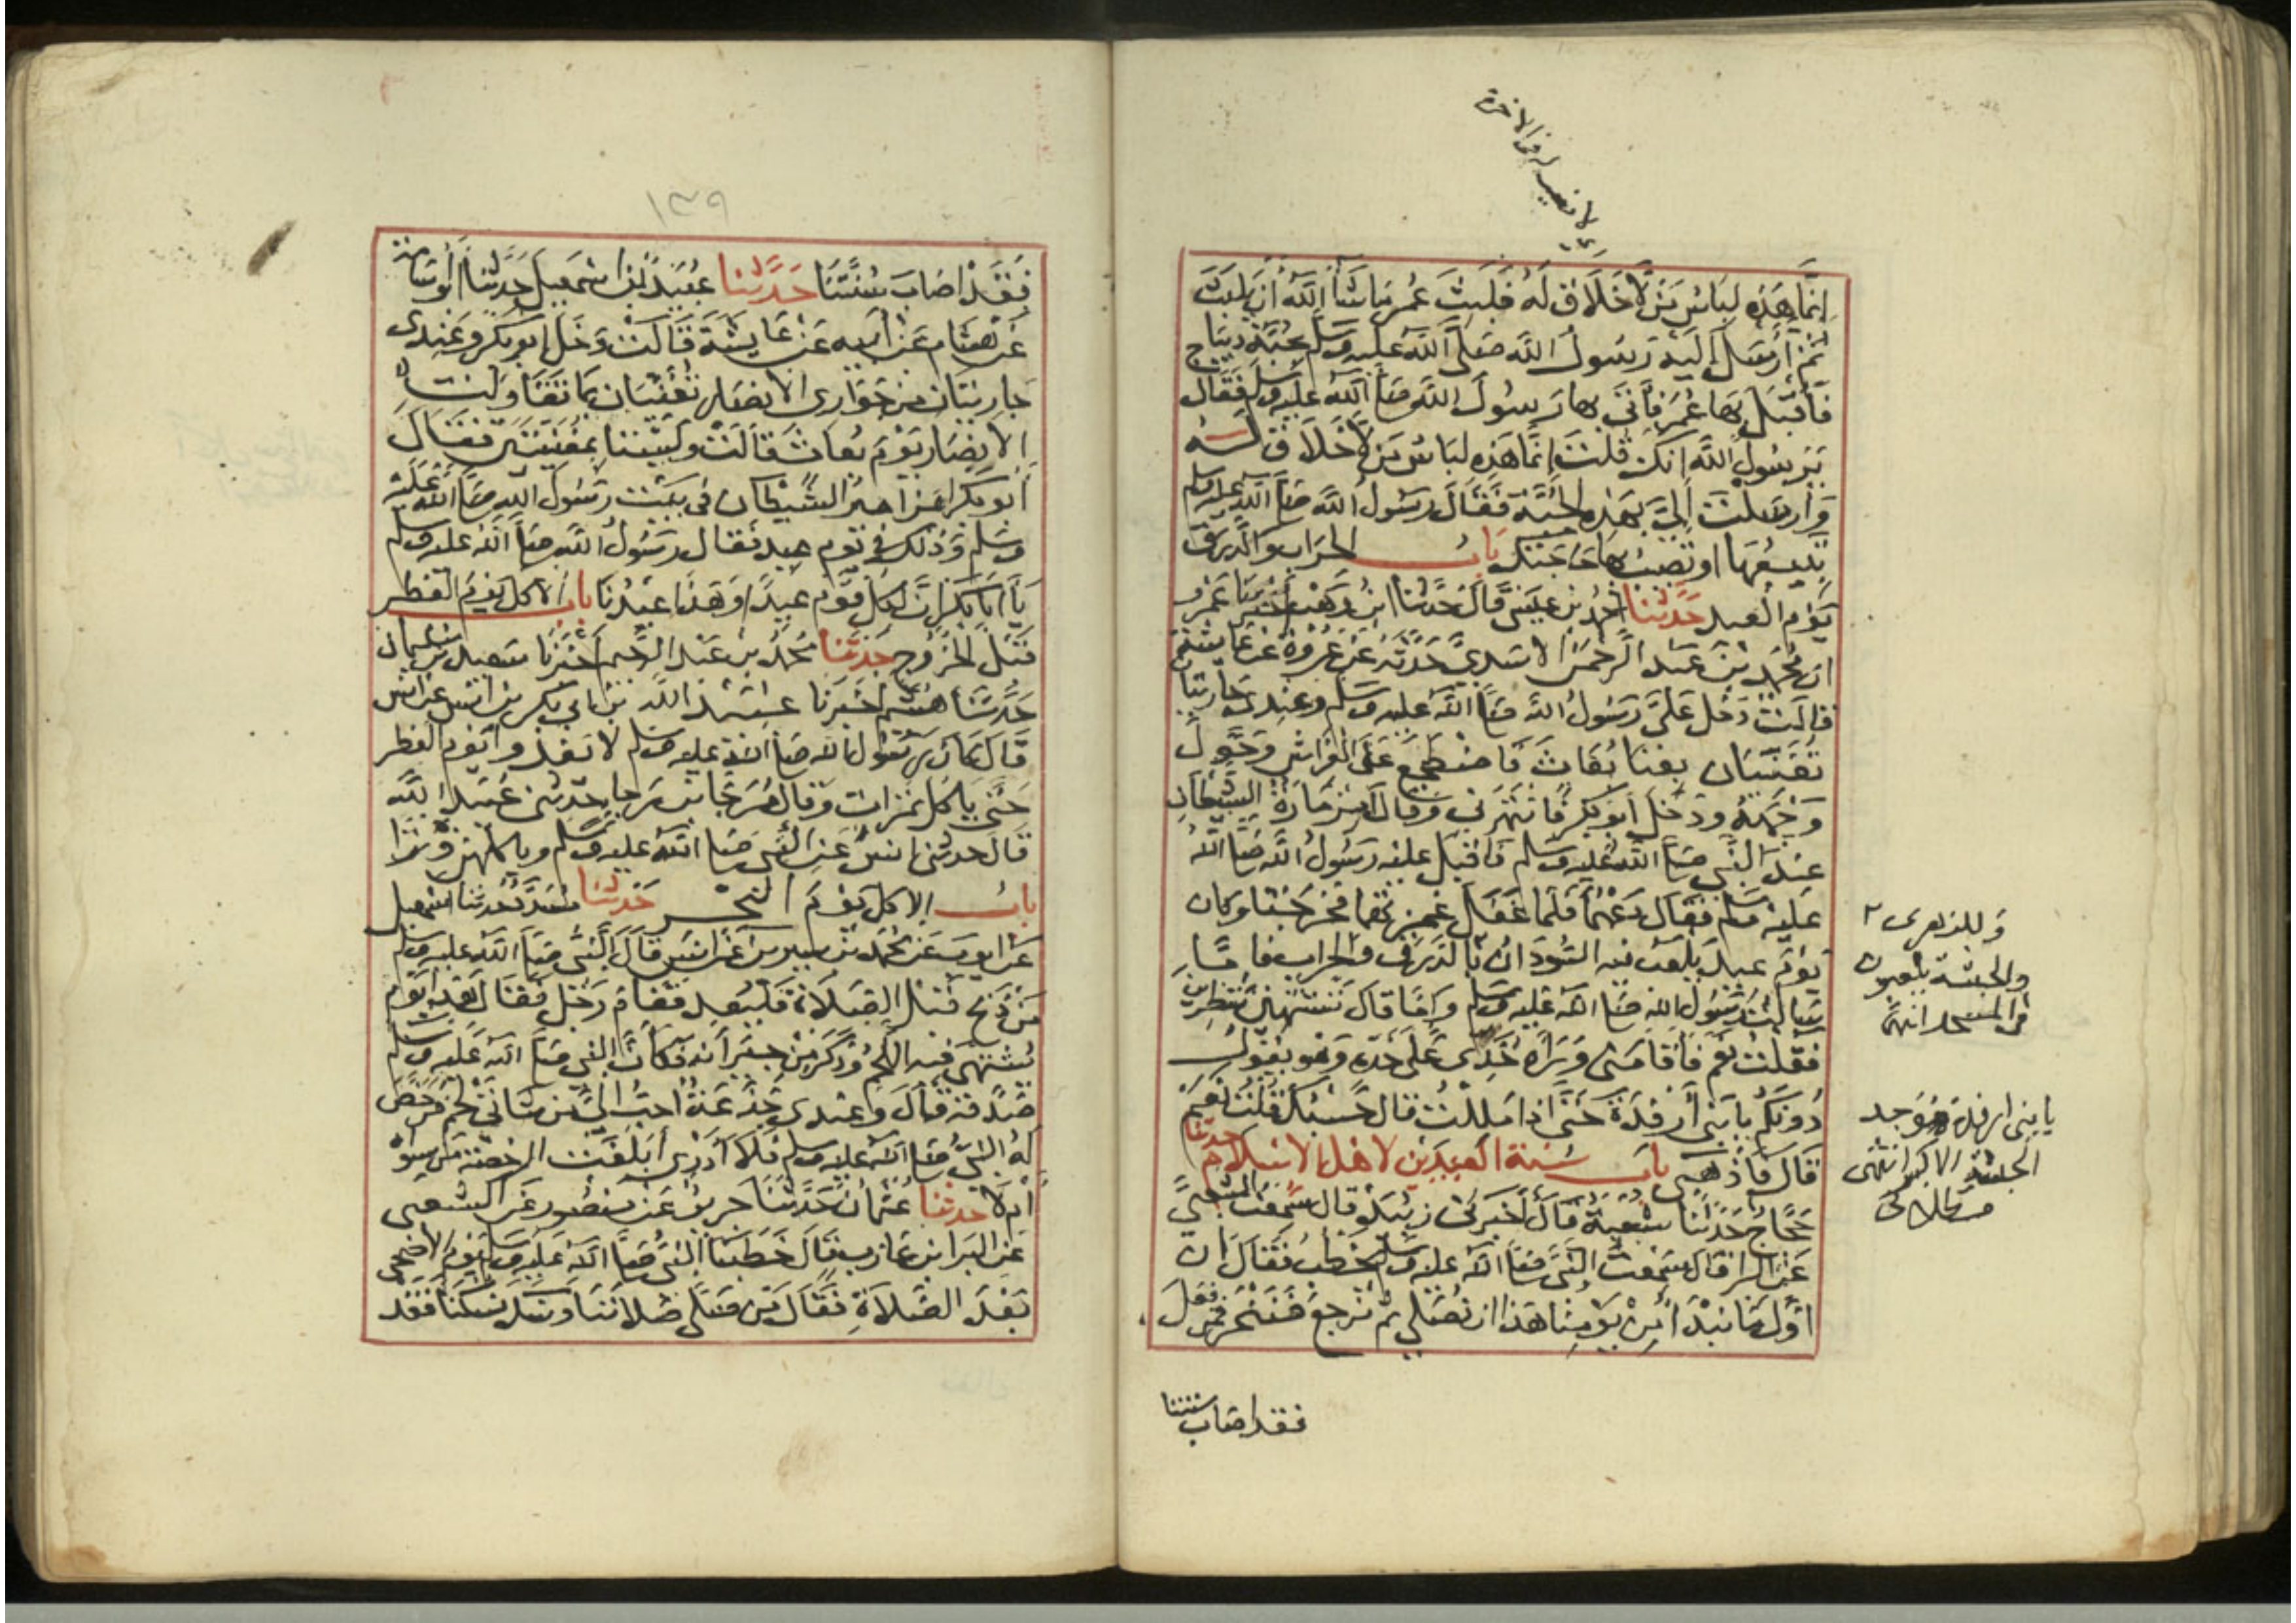 لا نصيب له في الآخرة
إِنَّمَا هَذِهِ لِبَاسُ مَنْ لَا خَلَاقَ لَهُ فَلَبِثَ عُمَرُ مَا شَاءَ اللَّهُ أَنْ يَلْبَثَ
ثُمَّ أَرْسَلَ إِلَيْهِ رَسُولُ اللَّهِ صَلَّى اللَّهُ عليه وسلم بجُبَّةِ ديباج
فَأَقْبَلَ بِهَا عُمَرُ فَأَتَى بها رَسُولَ اللَّهِ صَلَّى اللَّهُ عليه وسلم فَقَالَ
يَرسُولَ اللَّه انك قُلتَ إنَّما هَذِهِ لبَاسُ مَن لَا خَلَاقَ لَهُ
وَأرسَلتَ إِلَيَّ بِهَذِهِ الجُبَّةِ فَقَالَ رَسُولُ اللَّهِ صَلَّى اللَّهُ عليه وسلم
تَبِيعُهَا او تصِيبُ بهَا حَاجَتكَ بَابُ الحِرَابِ وَالدَّرَقِ
يَوْمَ العيد حَدَّثَنَا أحمدُ بن عِيسَى قَالَ حَدَّثَنَا ابنُ وَهْب أَخْبَرَنَا عَمرو
ان مُحَمَّد بنَ عَبد الرَّحمَن الاسَدِيَّ حَدَّثَهُ عَن عُروَةَ عَن عَائشة
قالَت دَخَلَ عَلَيَّ رَسُولُ اللَّه صَلَّى اللَّهُ عليه وسلم وعِندِي جَارِيَتَان
تُغَنِّيَان بِغنَا بُعَاثَ فَاضْطَجَعَ عَلَى الفِرَاشِ وَحَوَّلَ
وَجْهَهُ وَدَخَلَ أَبُو بَكر فَانْتَهَرَنى وَقَالَ مِزمَارَةُ الشَّيطَانِ
عندَ النَّبى صَلَّى اللَّهُ عليه وسلم فَاقبَلَ عليه رَسُولُ اللَّه صَلَّى اللَّهُ
عَلَيهِ وسلم فَقَال دَعْهُمَا فَلَمَّا غَفَلَ غَمَزتُهُمَا فَخَرَجَتَا وَكان
يَوْمَ عِيد يَلعَبُ فيه السُّودَانُ بالدَّرَقِ والحِرابِ فَإمَّا
سَالتُ رَسُولَ اللَّه صَلَّى اللَّهُ عَليه وسلم وَإمَّا قَالَ تَشْتَهِينَ تَنْظُرِينَ
فَقُلتُ نَعَم فَأَقَامَنِى وَرَاهُ خَدِّى عَلَى خَدِّهِ وَهو يَقُولُ
دُونَكُم يا بَنِى أَرْفِدَةَ حَتَّى اذا مَلِلْتُ قال حَسْبُكِ قُلتُ نَعَم
قَال فَاذْهَبِى بَابُ سُنَّة العِيدَين لاهل الاسلام حدثنا
حَجَّاجٌ حَدَّثَنَا شُعبَةُ قَالَ أَخبَرَنى زبَيد قال سَمِعتُ الشعبيَّ
عَن البَرا قال سَمِعتُ النَّبى صَلَّى اللَّهُ عليه وسلم يَخطُبُ فَقَالَ إنَّ
أوَّلَ مَا نَبْدَأُ مِن يَوْمِنَا هَذَا ان نُصَلِّى ثمَّ نَرجِعَ فَنَنْحَرَ فمن فعَلَ
فقد اصاب سنتنا
وَللزهري
والحبشة يلعبون
في المسجد انتهى
يا بنى ارفدة هو جد
الحبشة الاكبر انتهى
١٣٩
فَقَد اصَابَ سُنَّتَنَا حَدَّثَنَا عُبَيدُ بن اسْمَعِيل حَدَّثَنَا أَبُو أسَامَةَ
عَن هِشَام عَن أبيه عَن عَايشَةَ قَالَت دَخَلَ ابو بكر وعِندى
جارِيَتَان مِن جَوَارى الانصَارِ تُغَنِّيَان بمَا تَقَاوَلَت
الانصَار يَوْمَ بُعَاثَ قَالَت وَلَيْسَتَا بِمُغَنِّيَتَين فَقَالَ
أبو بَكر أمَزَامِيرُ الشَّيطَان فِى بَيت رَسُولِ اللَّه صَلَّى اللَّه عَلَيْهِ
وسلم وَذَلكَ فى يَوْم عيد فَقَال رَسُولُ اللَّه صَلَّى اللَّهُ عليه وسلم
يَا أبَا بَكر إنَّ لِكُلِّ قَوْم عِيدًا وَهَذَا عِيدُنَا بابُ الأكل يَوْمَ الفطر
قَبْلَ الخُرُوج حَدَّثَنَا مُحَمَّدُ بن عَبد الرَّحيم أخْبَرَنَا سَعيد بن سليمان
حَدَّثَنَا هُشَيم أَخبَرَنَا عُبَيد اللَّه بن أبى بَكر بن انَس عن انس
قَالَ كَانَ رَسُولُ الله صَلَّى اللَّه عليه وسلم لا يَغدُو يَوْم الفِطر
حَتَّى يأكل تَمَرَات وَقَالَ مُرَجَّا بن رَجَا حَدَّثنى عُبَيد اللَّه
قَالَ حَدثنى انسٌ عَن النَّبى صَلَّى اللَّهُ عليه وسلم وياكلهن وترًا
بابُ الاكل يَوْمَ النَّحْر حَدثنا مُسَدَّد حَدثنا اسمعيل
عَن ايوبَ عَن مُحَمَّد بن سِيرين عَن أنَس قَالَ النَّبى صَلَّى اللَّه عليه وسلم
مَن ذَبَحَ قَبْلَ الصَّلَاةِ فَليُعِد فَقَامَ رَجُل فَقَال هَذَا يَوْم
يُشْتَهَى فيه اللَّحمُ وَذَكَرَ مِن جيرَانِه فَكَأَنَّ النَّبى صَلَّى اللَّه عَليه وسلم
صَدَّقَهُ قَالَ وَعِندِى جَذَعَةٌ أَحَبُّ إلَيَّ مِن شَاتَى لَحْم فَرَخَّصَ
لَهُ النَّبىُّ صَلَّى اللَّه عليه وسلم فَلَا أَدْرِى أَبَلَغَت الرخصَة مَن سِوَاهُ
أَم لَا حدثنا عُثمَانُ حَدَّثَنَا جَرِيرٌ عَن مَنصُور عَن الشعبى
عَن البَرا بن عَازب قَالَ خَطَبَنَا النَّبىُّ صَلَّى اللَّهُ عَلَيه وسلم يَوْمَ الاضحى
بَعْدَ الصَّلَاةِ فَقَالَ مَن صَلَّى صَلَاتَنَا وَنَسَكَ نُسُكَنَا فَقَد